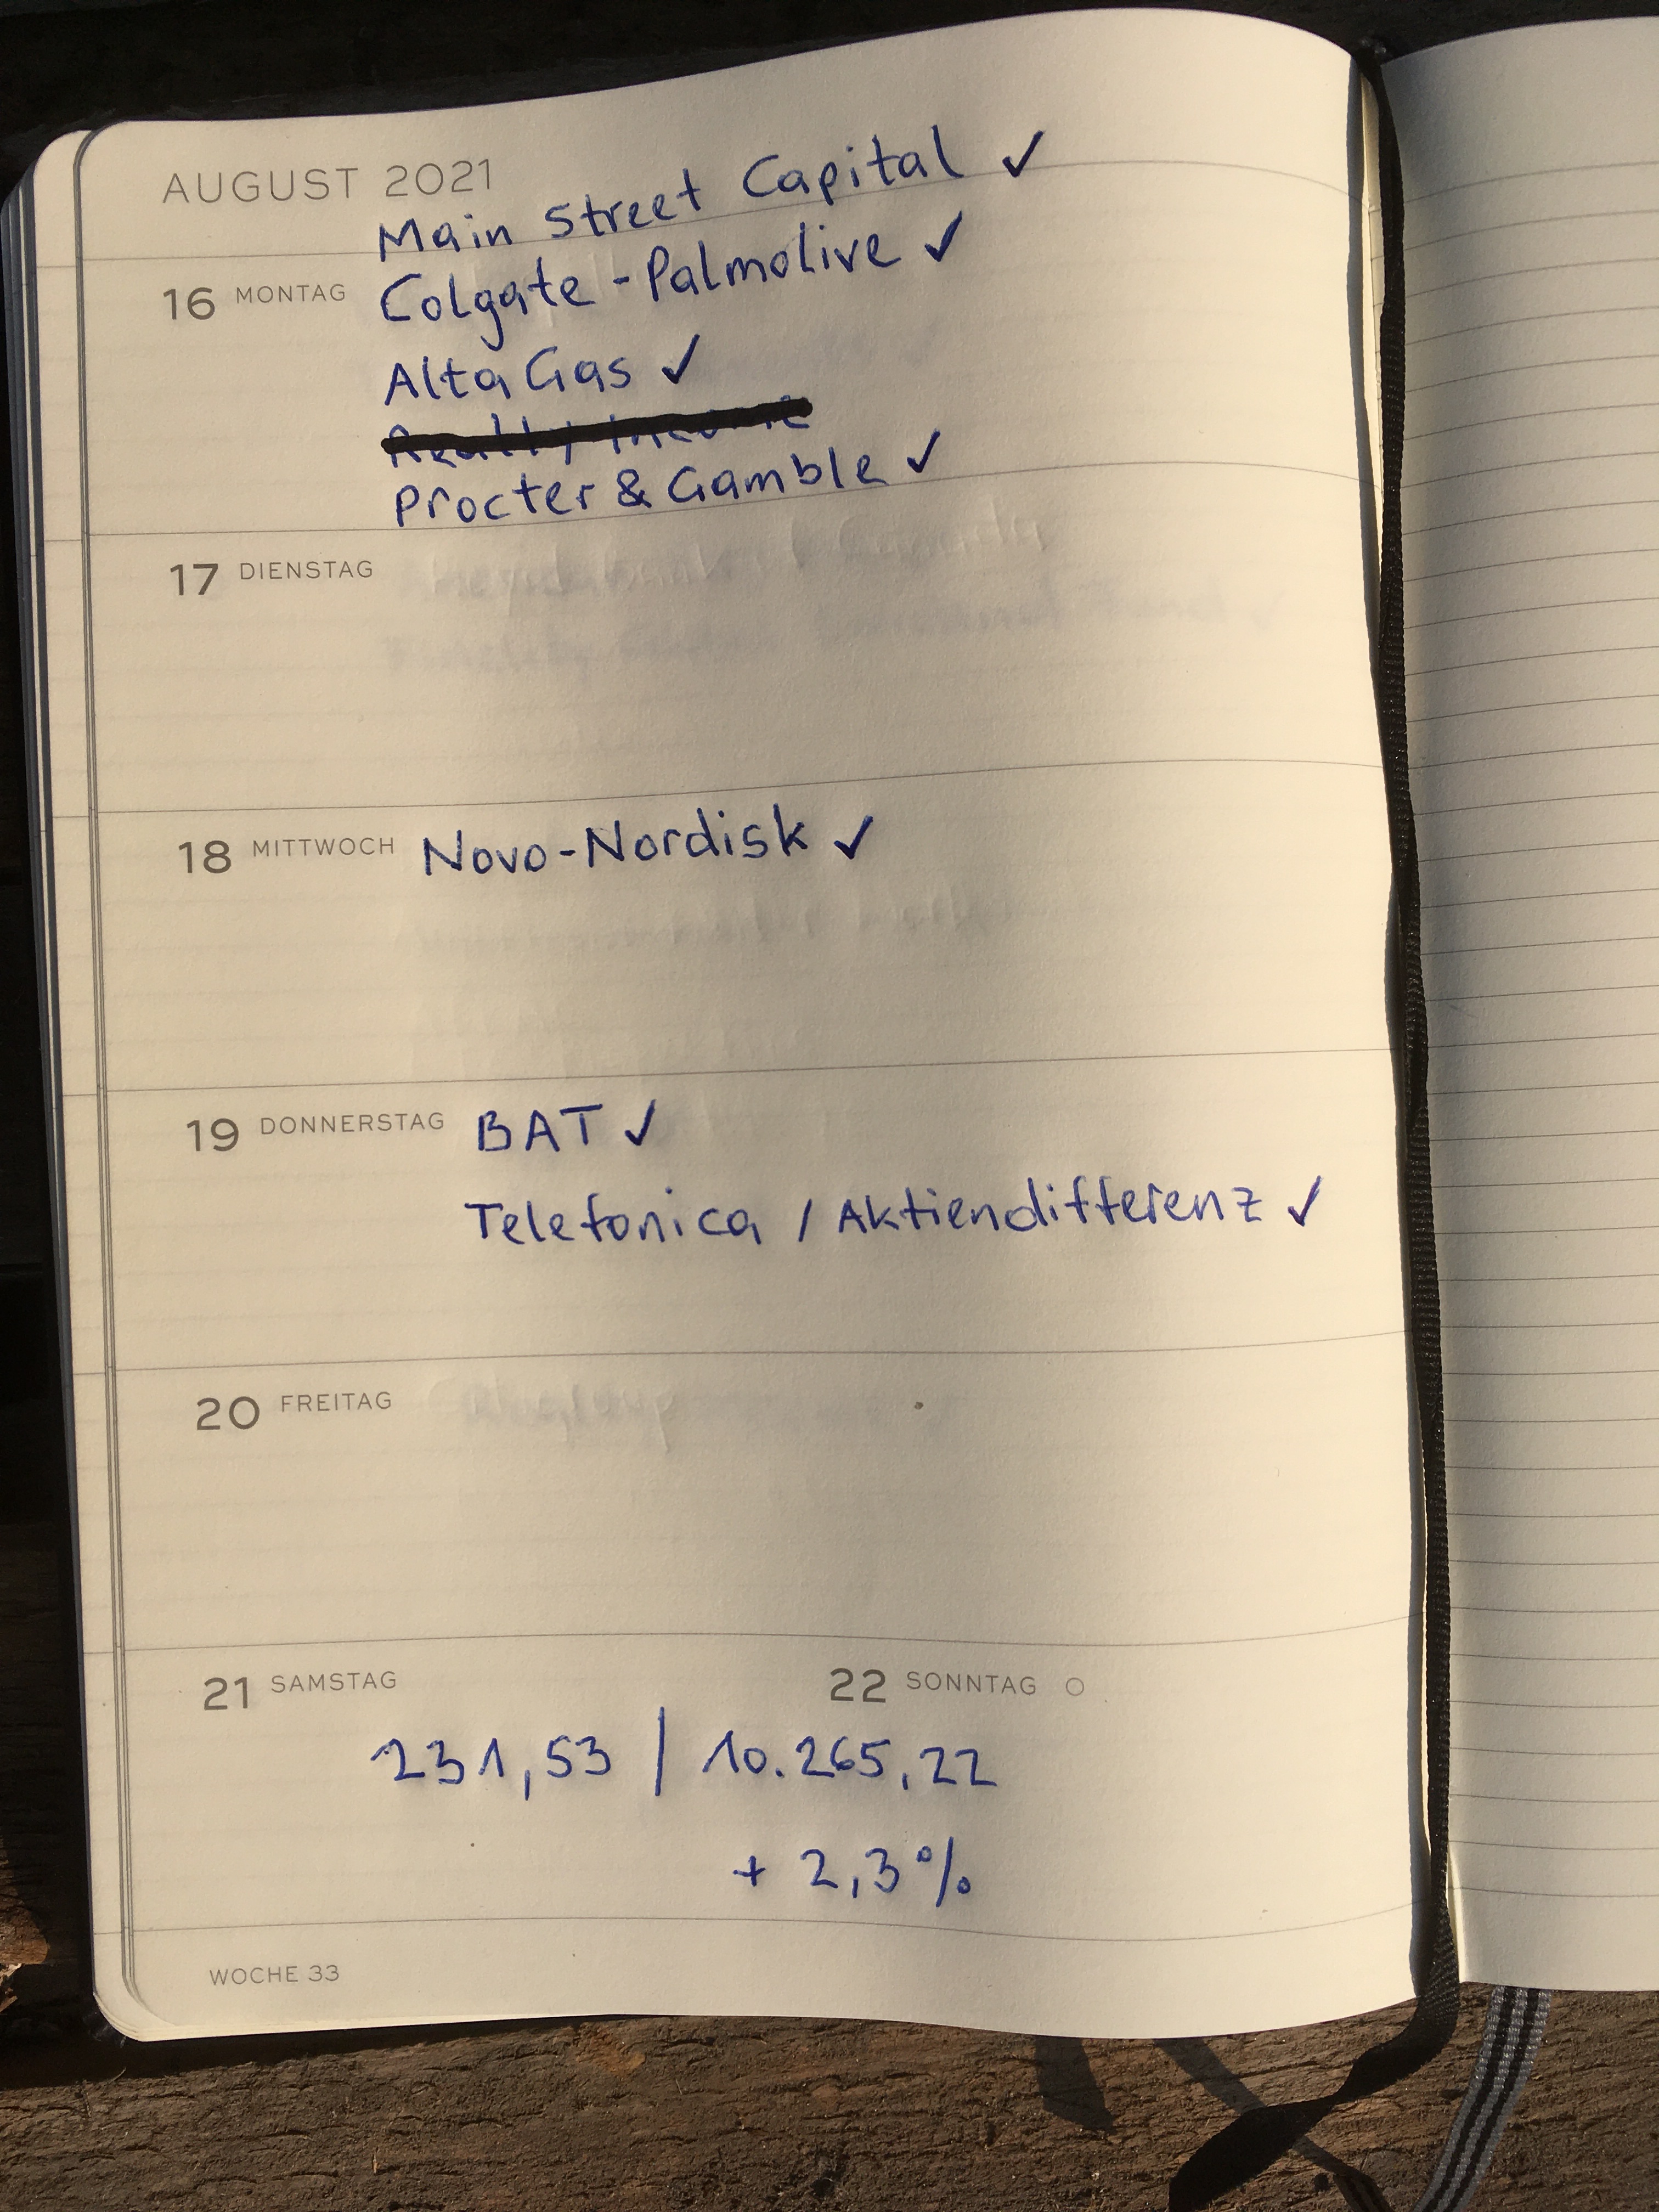 AUGUST 2021
Main Street Capital ✓
16 MONTAG Colgate-Palmolive ✓
Alta Gas ✓
Realty Income
Procter & Gamble ✓
17 DIENSTAG
18 MITTWOCH Novo-Nordisk ✓
19 DONNERSTAG BAT ✓
Telefonica / Aktiendifferenz ✓
20 FREITAG
21 SAMSTAG 22 SONNTAG
231,53 / 10.265,22
+ 2,3%
WOCHE 33